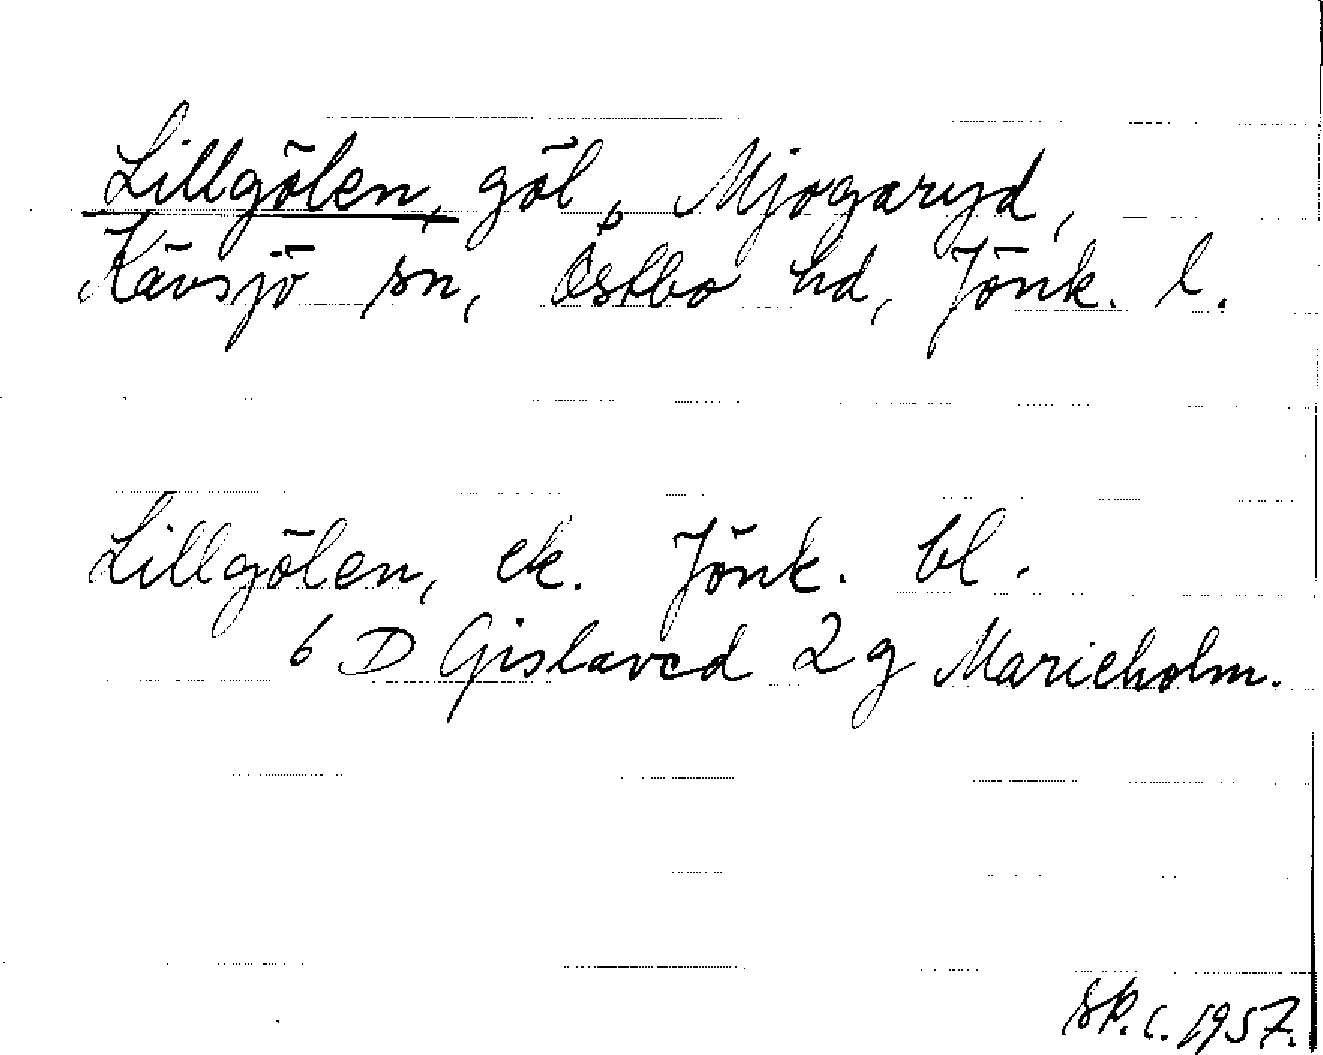 Lillgölen, göl, Mjogaryd,
Kävsjö sn, Östbo hd, Jönk. l.
Lillgölen, ek. Jönk. bl.
6 D Gislaved 2 g Marieholm.
Sk. c. 1957.